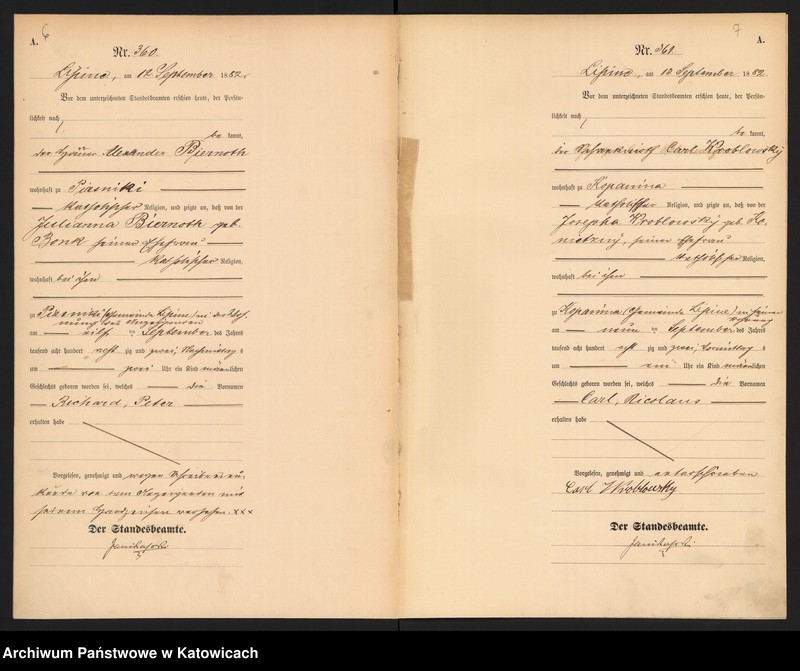 6
A.
Nr. 360.
Lipine, am 12 September 1882.
Vor dem unterzeichneten Standesbeamten erschien heute, der Persön-
lichkeit nach
be kannt,
der Häuer Alexander Biernoth
wohnhaft zu Piasniki
katholischer Religion, und zeigte an, daß von der
Julianna Biernoth geb.
Bonk seiner Ehefrau
katholischer Religion,
wohnhaft bei ihm
zu Piasniki (Gemeinde Lipine) in der Woh-
nung des Anzeigenden
am elften September des Jahres
tausend acht hundert acht zig und zwei, Nachmittag s
um zwei Uhr ein Kind männlichen
Geschlechts geboren worden sei, welches die Vornamen
Richard, Peter
erhalten habe
Vorgelesen, genehmigt und wegen Schreibensun-
kunde von dem Anzeigenden mit
seinem Handzeichen versehen. xxx
Der Standesbeamte.
7
A.
Nr. 361
Lipine, am 12 September 1882.
Vor dem unterzeichneten Standesbeamten erschien heute, der Persön-
lichkeit nach
be kannt,
der Schankwirth Carl Wroblowsky
wohnhaft zu Kopanina
katholischer Religion, und zeigte an, daß von der
Josepha Wroblowsky geb. Ko-
nietzny, seiner Ehefrau
katholischer Religion,
wohnhaft bei ihm
zu Kopanina (Gemeinde Lipine) in seiner
Wohnung
am neun ten September des Jahres
tausend acht hundert acht zig und zwei, Vormittag s
um ein Uhr ein Kind männlichen
Geschlechts geboren worden sei, welches die Vornamen
Carl, Nicolaus
erhalten habe
Vorgelesen, genehmigt und unterschrieben
Carl Wroblowsky
Der Standesbeamte.
Archiwum Państwowe w Katowicach